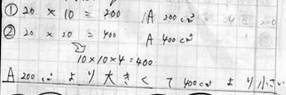 ① 20 × 10 = 200 A 200 cm²
② 20 × 20 = 400 A 400 cm²
10×10×4=400
A 200 cm² より大きくて 400 cm² より小さい